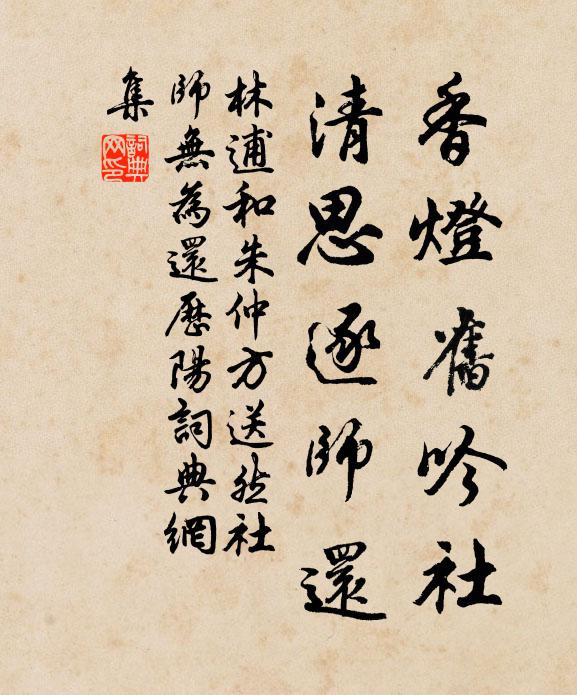 香燈舊吟社
清思逐師還
林逋和朱仲方送然社
師無為還歷陽詞典網
集
詞典網印